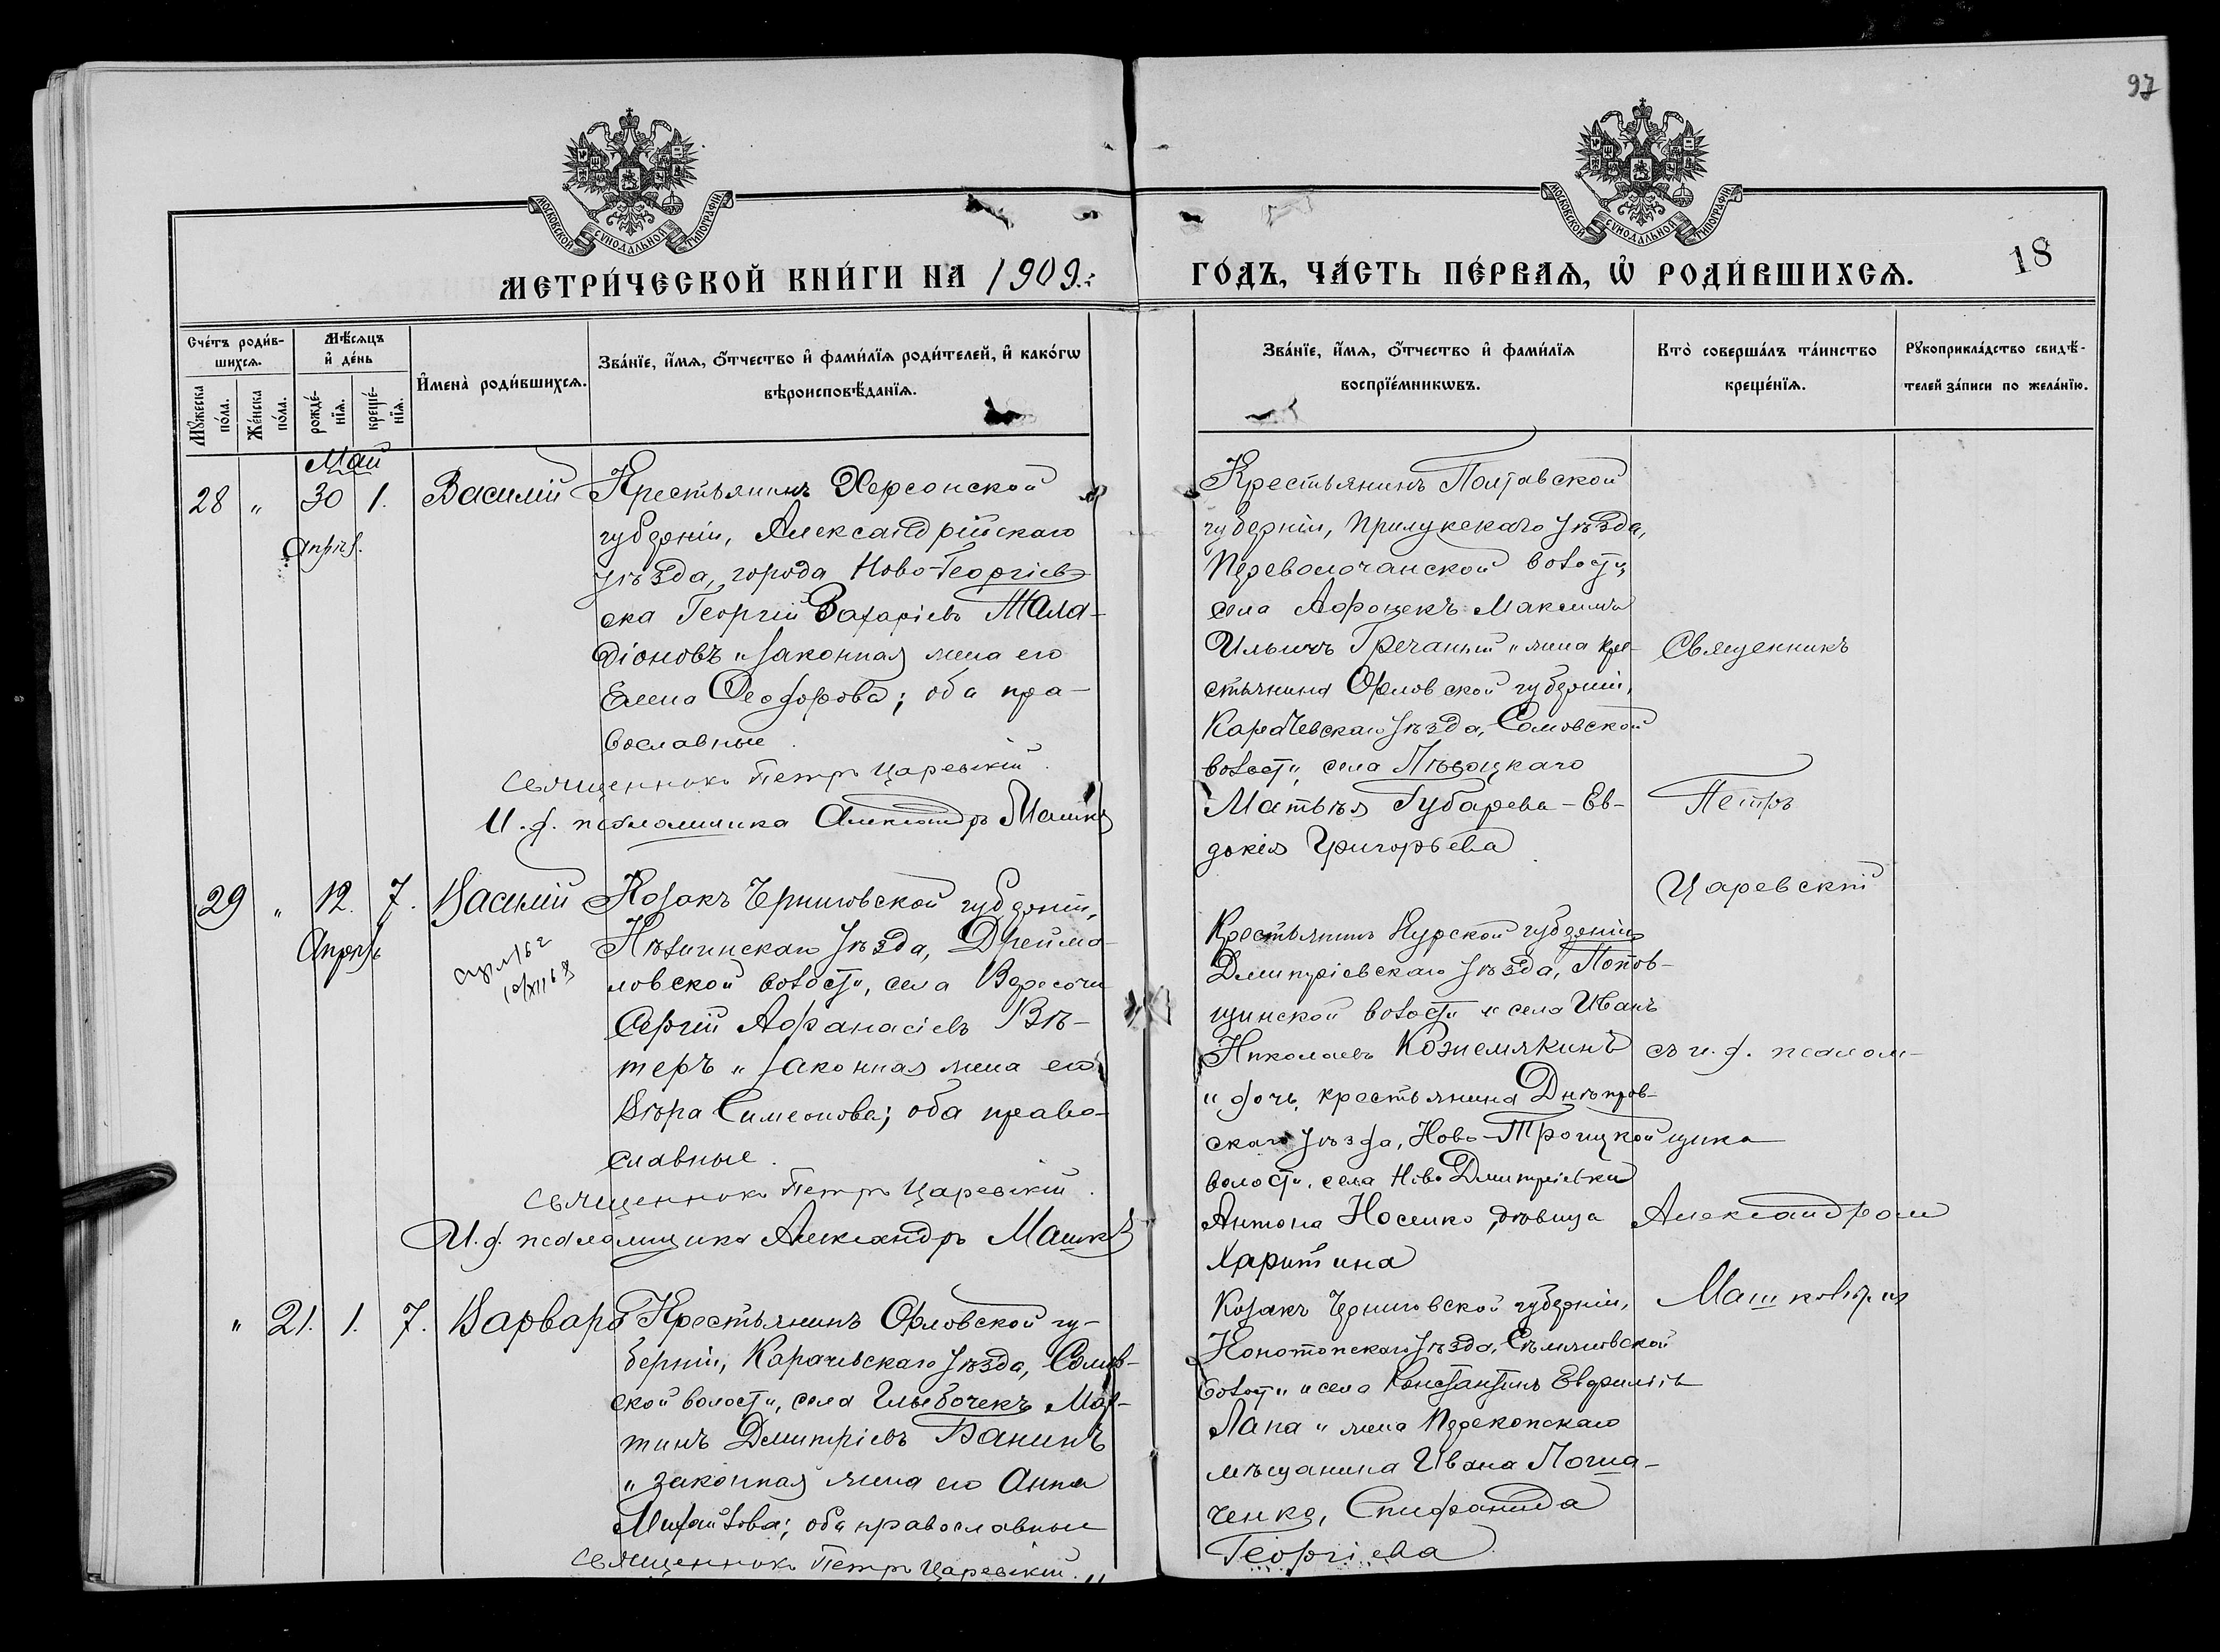 97
МОСКОВСКОЙ СѴНОДАЛЬНОЙ ТИПОГРАФІИ
МОСКОВСКОЙ СѴНОДАЛЬНОЙ ТИПОГРАФІИ
МЕТРИ́ЧЕСКОЙ КНИ́ГИ НА 1909.
ГО́ДЪ, ЧА́СТЬ ПЕ́РВАѦ, Ѡ҆ РОДИ́ВШИХСѦ. 18
Сче́тъ роди́в-
шихсѧ.
Мꙋ́жеска
по́ла.
Же́нска
по́ла.
Мѣ́сѧцъ
и҆ де́нь
рожде́-
нїѧ.
креще́-
нїѧ.
И҆мена̀ роди́вшихсѧ.
Зва́нїе, и҆́мѧ, ѻ҆́тчество и҆ фами́лїѧ роди́телей, и҆ како́гѡ
вѣроисповѣ́данїѧ.
Зва́нїе, и҆́мѧ, ѻ҆́тчество и҆ фами́лїѧ
воспрїе́мникѡвъ.
Кто̀ соверша́лъ та́инство
креще́нїѧ.
Рꙋкоприкла́дство свидѣ́-
телей за́писи по жела́нїю.
Май
28 " 30 1. Василій
Апрѣл.
Крестьянинъ Херсонской
губерніи, Александрійскаго
уѣзда, города Ново-Георгіев-
ска Георгій Захаріевъ Мала-
діоновъ и законная жена его
Елена Ѳеодорова; оба пра-
вославные.
Священникъ Петръ Царевскій.
И. д. псаломщика Александръ Машко
Крестьянинъ Полтавской
губерніи, Прилукскаго уѣзда,
Переволочанской волости,
села Максимъ
Ильичъ Гречаный и жена кре-
стьянина Орловской губерніи,
Карачевскаго уѣзда, Самовской
волости, села
Матвѣя Губарева - Ев-
докія Григорьева
29 " 12. 7. Василій
Апрѣль
Козакъ Черниговской губерніи,
Нѣжинскаго уѣзда, Дрейма-
ловской волости, села Вересочи
Сергій Афанасіевъ Вѣ-
теръ и законная жена его
Вѣра Симеонова; оба право-
славные.
Священникъ Петръ Царевскій.
И. д. псаломщика Александръ Машко
Крестьянинъ Курской губерніи
Дмитріевскаго уѣзда, Попов-
щинской волости и села Иванъ
Николаевъ Кожемякинъ
и дочь крестьянина Днѣпров-
скаго уѣзда, Ново-Троицкой
волости, села Ново Дмитріевки
Антона Носенко, дѣвица
Харитина
" 21. 1. 7. Варвара
Крестьянинъ Орловской гу-
берніи, Карачевскаго уѣзда, Самов-
ской волости, села Глыбочекъ Мар-
тинъ Дмитріевъ Банинъ
и законная жена его Анна
Михайлова; оба православные
Священникъ Петръ Царевскій.
Козакъ Черниговской губерніи,
Конотопскаго уѣзда,
волости и села Константинъ
Лапа и жена Перекопскаго
мѣщанина Ивана
ченко, Епифанида
Георгіева
Священникъ
Петръ
Царевскій
съ и. д. псалом-
щика
Александромъ